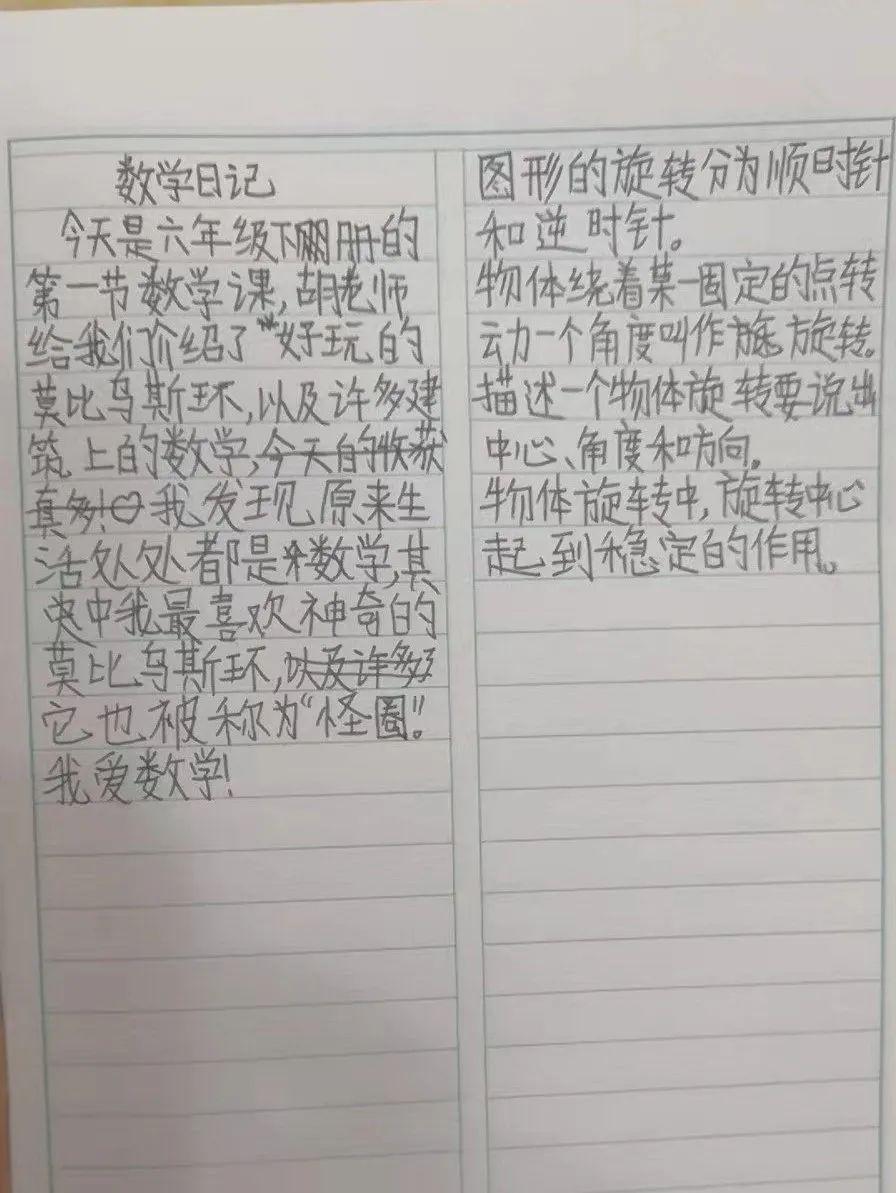 数学日记
今天是六年级下册的
第一节数学课,胡老师
给我们介绍了好玩的
莫比乌斯环,以及许多建
筑上的数学,今天的收获
真多!我发现原来生
活处处都是数学,其
中我最喜欢神奇的
莫比乌斯环,以及许多
它也被称为“怪圈”!
我爱数学!
图形的旋转分为顺时针
和逆时针。
物体绕着某一固定的点转
动一个角度叫作旋转。
描述一个物体旋转要说出
中心、角度和方向。
物体旋转中,旋转中心
起到稳定的作用。